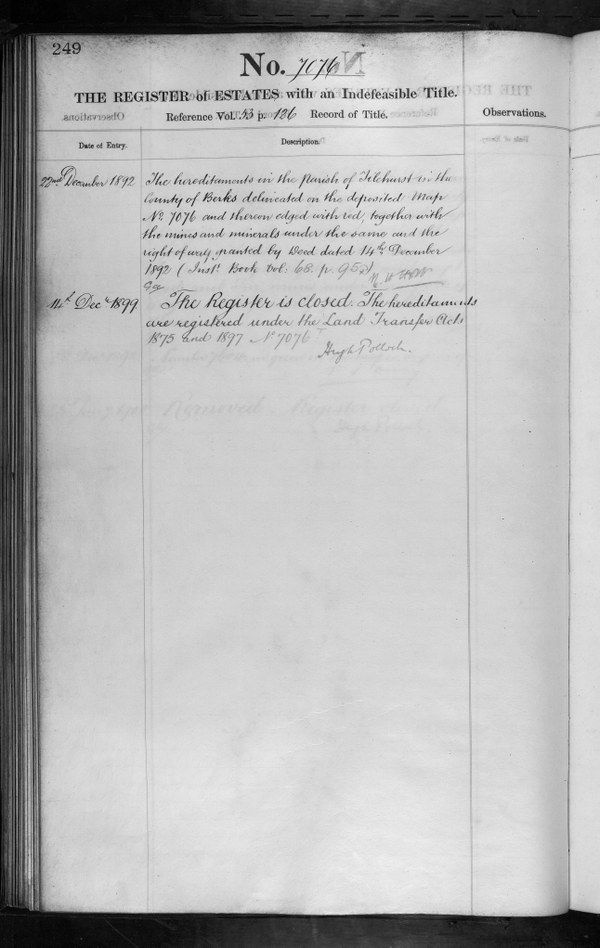 249
No. 7076
THE REGISTER of ESTATES with an Indefeasible Title.
Reference Vol. 53 p. 136 Record of Title.
Observations.
Date of Entry.
Description.
22nd December 1892
The hereditaments in the parish of Tilehurst in the
County of Berks delineated on the deposited Map
No 7076 and thereon edged with red, together with
the mines and minerals under the same and the
right of way granted by Deed dated 14th December
1892 (Inst. Book Vol. 68. p. 95)
14th Decr 1899
The Register is closed. The hereditaments
are registered under the Land Transfer Acts
1875 and 1897 No 7076
Hugh Pollock.